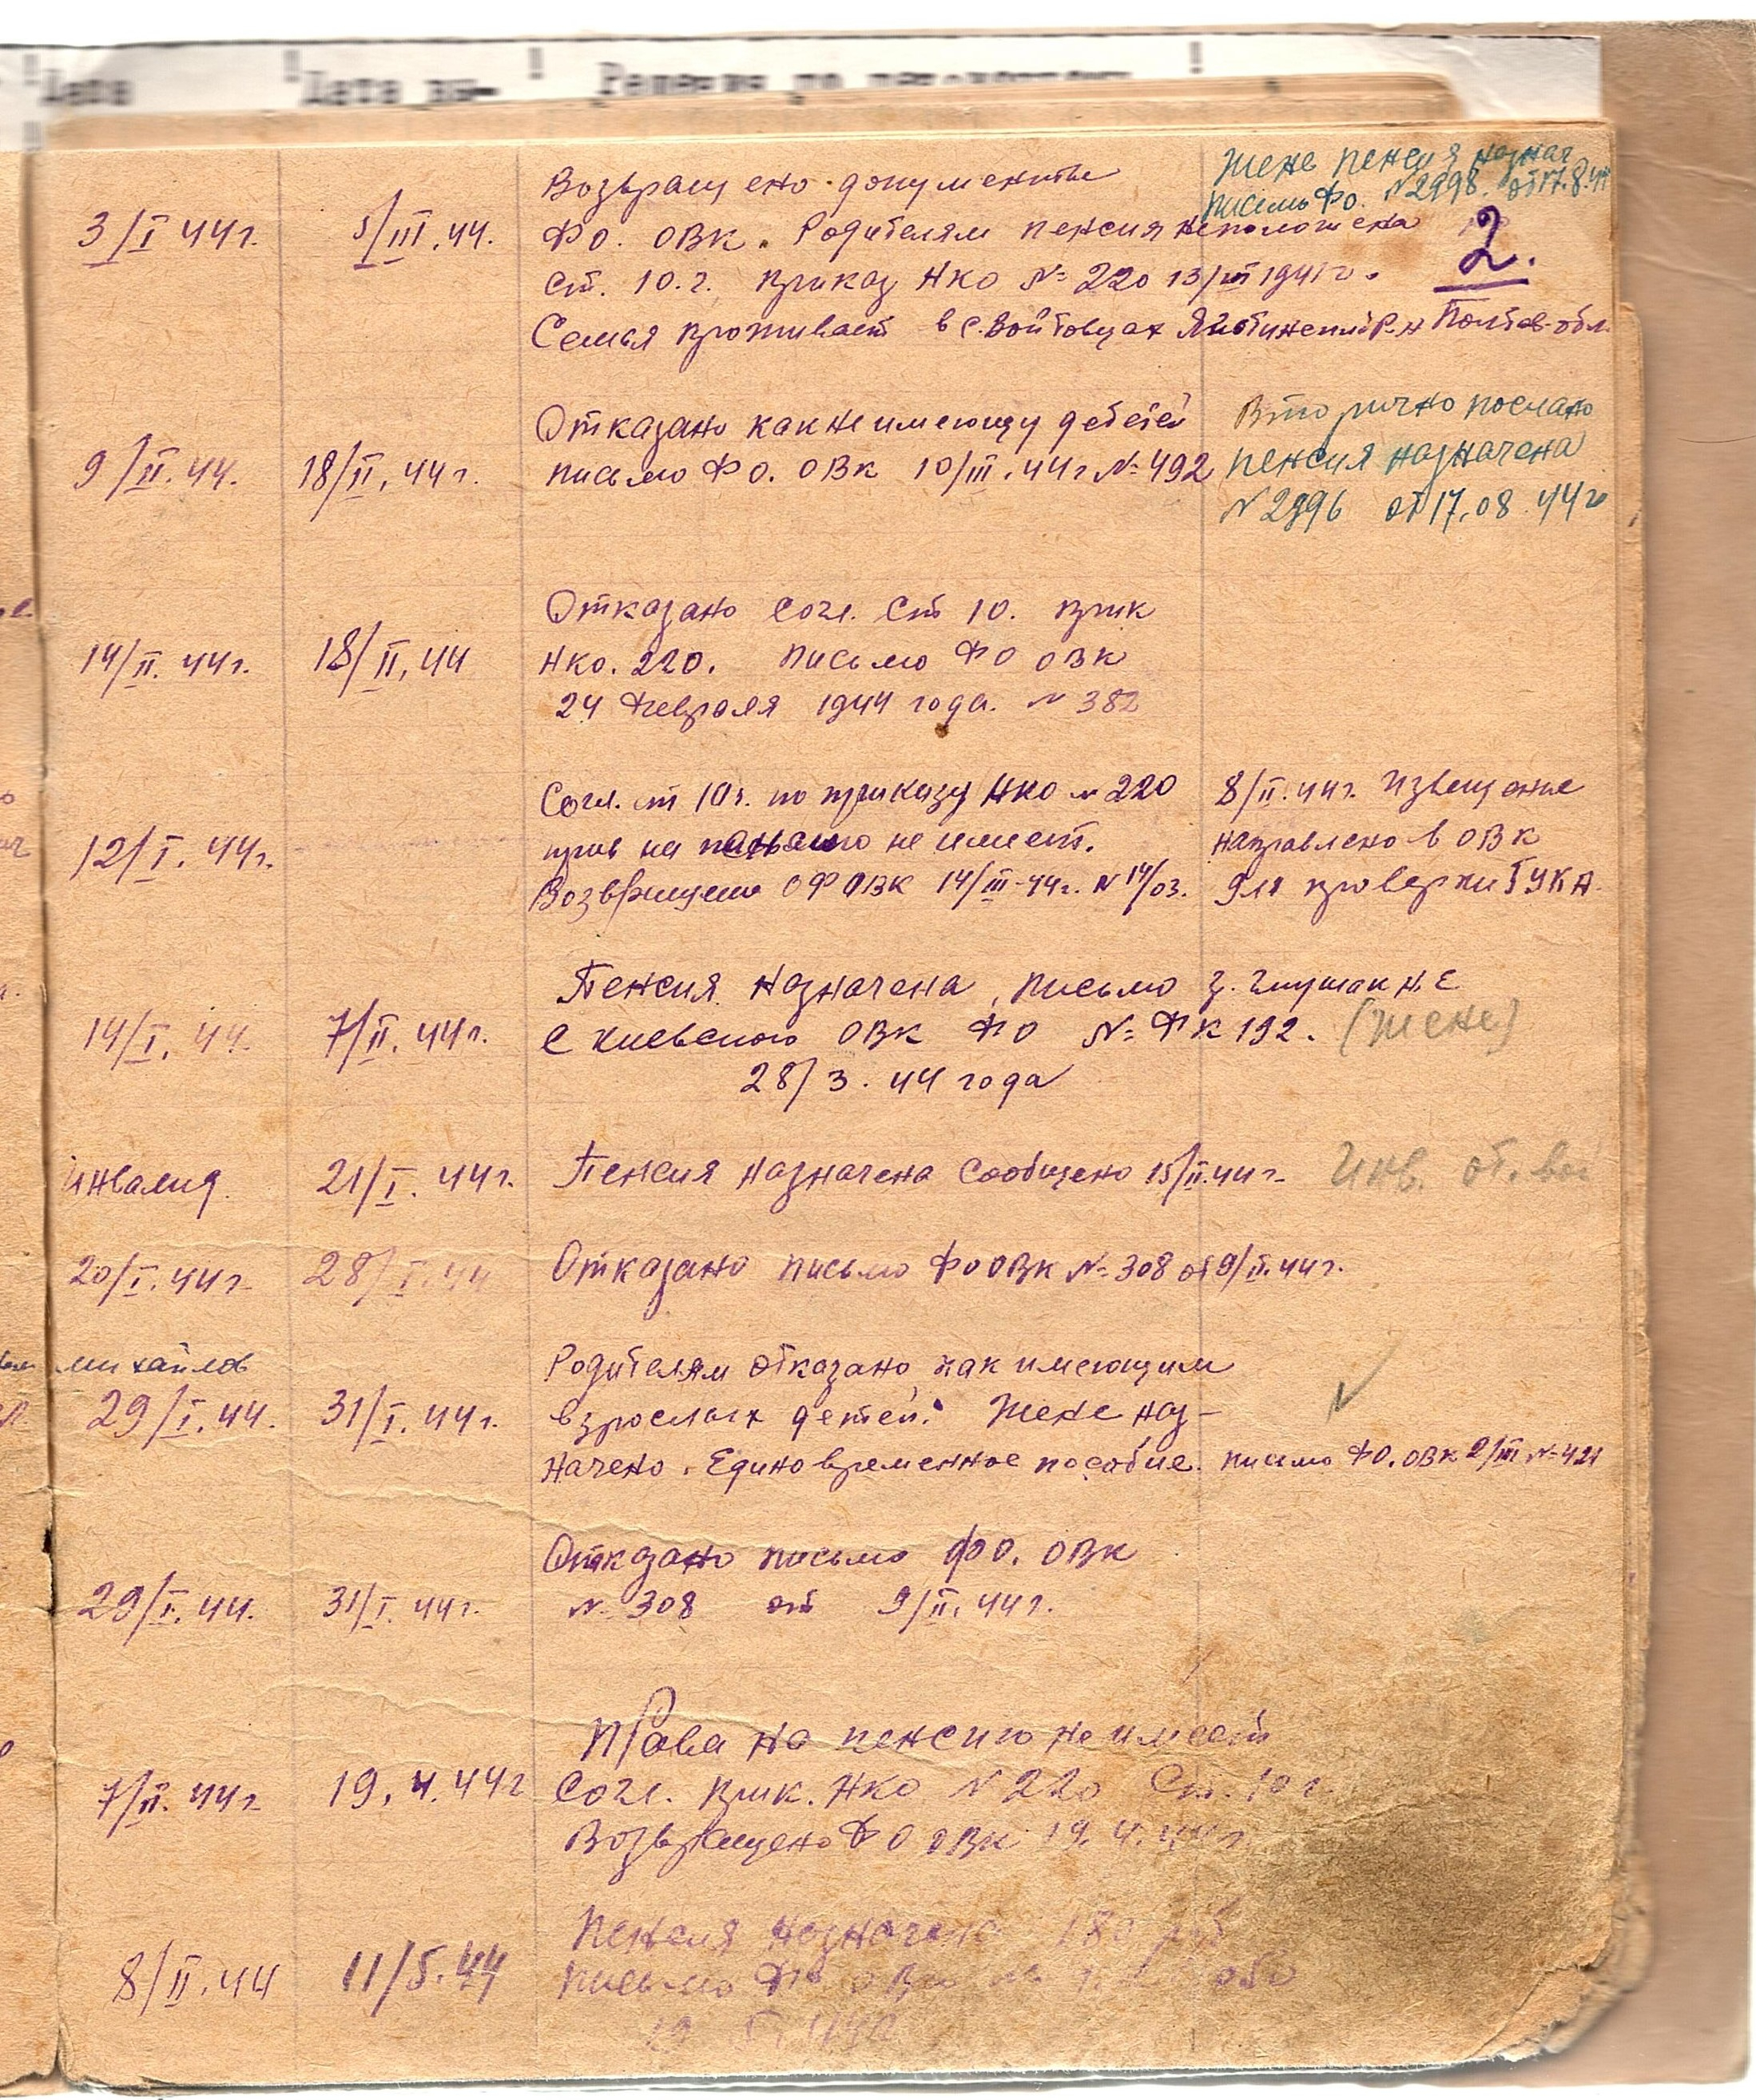 Дата Дата вы-
Жене пенсия назнач
письмо Фо. N 2998. от 17.8.44
Возвращено документы
3/I 44г. 5/III.44. ФО. ОВК. Родителям пенсия неположена 2.
ст. 10.г. приказ НКО № 220 13/III 1941г.
Семья проживает в с. Войтовцах р-н Полтав. обл.
Отказано как не имеющу детей Вторично послано
9/II.44. 18/II.44г. письмо ФО. ОВК 10/III.44г № 492 пенсия назначена
N 2996 от 17.08.44г
Отказано согл. Ст 10. прик
14/II.44г. 18/II.44 НКО. 220. письмо ФО ОВК
24 февраля 1944 года. N 382
Согл. ст 10г. по приказу НКО N 220 8/II.44г. Извещение
12/I.44г. прав на не имеет. направлено в ОВК
Возвращено ОФ ОВК 14/III-44г. N 14/03. для проверки ГУКА.
Пенсия назначена, письмо Н. Е
14/I.44. 7/II.44г. с киевского ОВК ФО №ФК 192. (жене)
28/3.44 года
инвалид. 21/I.44г. Пенсия назначена сообщено 15/II.44г. Инв. от. вой
20/I.44г 28/I.44 Отказано письмо ФО ОВК № 308 от 9/II.44г.
михайлов Родителям отказано как имеющим
29/I.44. 31/I.44г. взрослых детей. Жене наз-
начено. Единовременное пособие. письмо ФО. ОВК 2/III № 421
Отказано письмо ФО. ОВК
29/I.44. 31/I.44г. № 308 от 9/II.44г.
Права на пенсию не имеет
7/II.44г 19.4.44г Согл. прик. НКО N 220 Ст. 10 г.
Возвращено ФО ОВК 19.4.44г
Пенсия назначена
8/II.44 11/5.44 письмо ФО ОВК
19